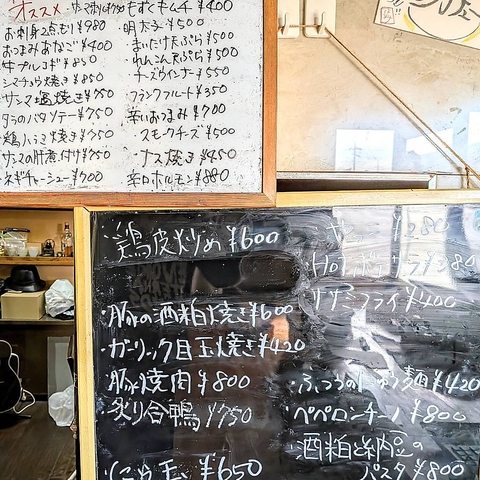 オススメ
お刺身2点もり ¥980
おつまみあなご ¥400
牛プルコギ ¥850
シマチョウ焼き ¥850
サンマ塩焼き ¥750
タラのバタソテー ¥750
鶏ハラミ焼き ¥750
サンマの肝煮付け ¥750
ネギチャーシュー ¥700
もずくキムチ ¥400
明太子 ¥500
まいたけ天ぷら ¥500
れんこん天ぷら ¥500
チーズウインナー ¥550
フランクフルート ¥350
辛いおつまみ ¥700
スモークチーズ ¥500
ナス焼き ¥450
辛口ホルモン ¥880
鶏皮炒め ¥600
・豚の酒粕焼き ¥600
・ガーリック目玉焼き ¥420
・豚焼肉 ¥800
炙り合鴨 ¥750
・にら玉 ¥650
¥280
¥400
¥420
・ペペロンチーノ ¥800
・酒粕と納豆の
パスタ ¥800